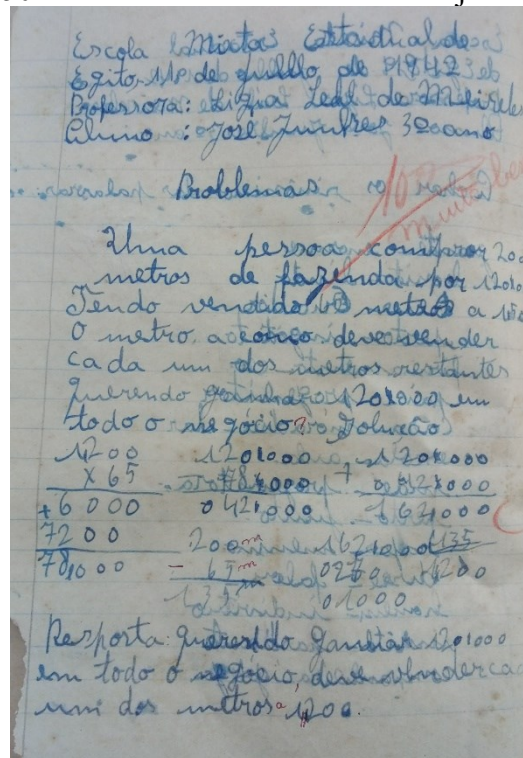 Escola Mixta Estadual de
Egito, 11 de julho de 1942
Professora: Ligia Leal de Meireles
Aluno: José 3o ano
Problemas
10
Muito bem
Uma pessoa comprou 200
metros de fazenda por 120$000
Tendo vendido 65 metros a 1$200
O metro, a como deve vender
cada um dos metros restantes
querendo ganhar 120$000 em
todo o negócio? Solução
1200 120$000 120$000
X 65 78$000 + 042$000
+ 6000 042$000 162$000
7200 200m 162$000 135
78$000 - 65m 0270 1200
135 01000
Resposta: Querendo Ganhar 120$000
em todo o negócio, deve vender ca
um dos metros a 1200.